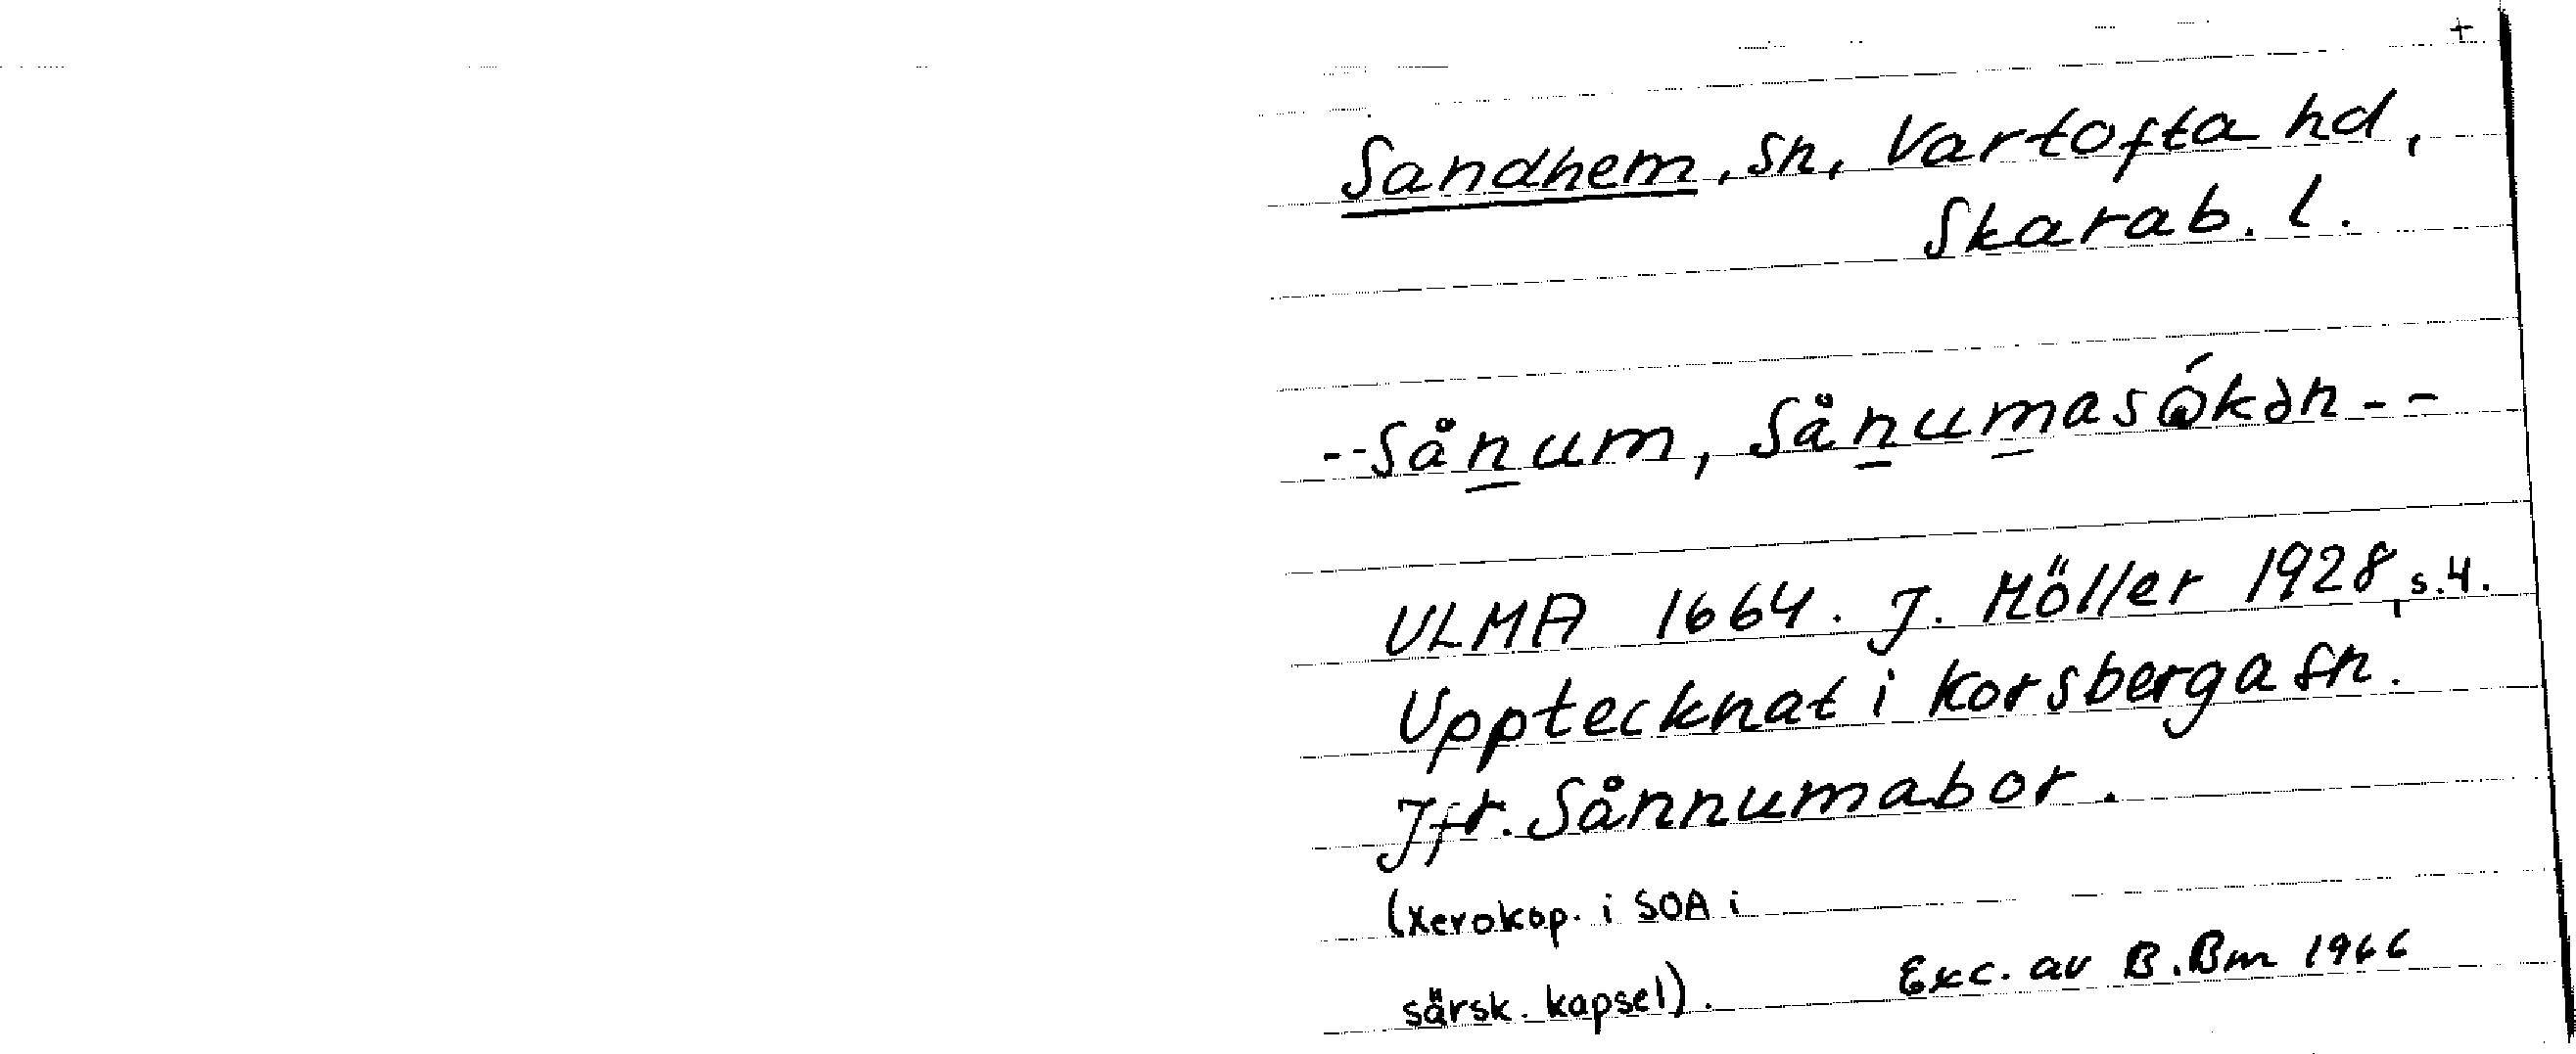 +
Sandhem, sn, Vartofta hd,
Skarab. l.
--Sånum, Sånumasǿkən--
ULMA 1664. J. Möller 1928, s.4.
Upptecknat i Korsberga sn.
Jfr. Sånnumabor.
(Xerokop. i SOA i
särsk. kapsel).
Exc. av B.Bm 1966